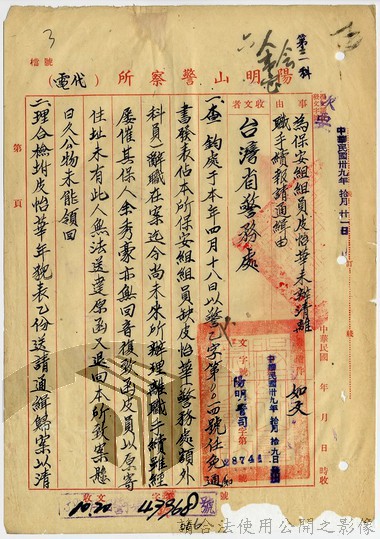 陽明山警察所（代電）
號檔
第二科
3
中華民國卅九年拾月廿一日
事由
為保安組組員皮怡華未辦清離職手續報請通緝由
收文者
台灣省警務處
如文
中華民國 年 月 日 時收
中華民國卅九年拾月拾九日
陽明警司字第
28744
號
一、查鈞處于本年四月十八日以警乙字第
四號任免通知
書發表佔本所保安組組員缺皮怡華警務處額外
科員）辭職在案迄今尚未來所辦理離職手續雖經
屢催其保人余秀豪亦無回音復致函皮員以原寄
住址未有此人無法送達原函又退回本所致案懸
日久公物未能領回
二、理合檢附皮怡華年貌表乙份送請通緝歸案以清
第 頁
收文 字 號
請合法使用公開之影像